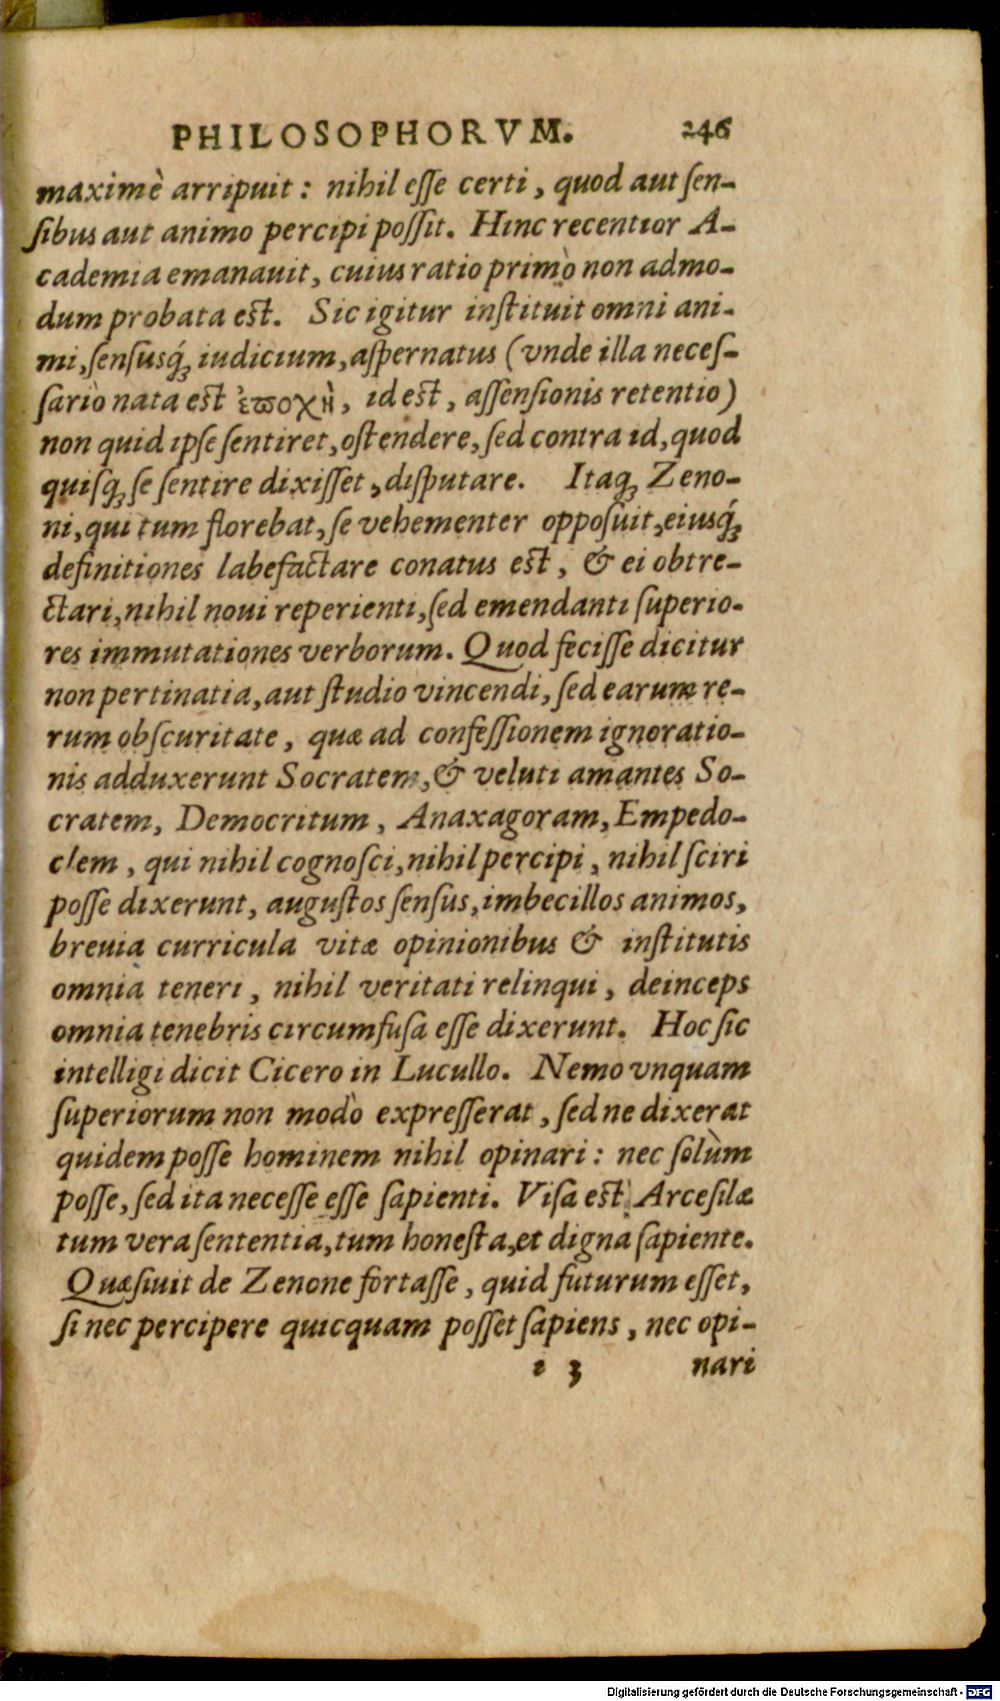 PHILOSOPHORVM. 246
maximè arripuit: nihil esse certi, quod aut sen-
sibus aut animo percipi possit. Hinc recentior A-
cademia emanauit, cuius ratio primò non admo-
dum probata est. Sic igitur instituit omni ani-
mi, sensusq́; iudicium, aspernatus (vnde illa neces-
sariò nata est ἐποχὴ, id est, assensionis retentio)
non quid ipse sentiret, ostendere, sed contra id, quod
quisq; se sentire dixisset, disputare. Itaq; Zeno-
ni, qui tum florebat, se vehementer opposuit, eiusq́;
definitiones labefactare conatus est, & ei obtre-
ctari, nihil noui reperienti, sed emendanti superio-
res immutationes verborum. Quod fecisse dicitur
non pertinatia, aut studio vincendi, sed earum re-
rum obscuritate, quæ ad confessionem ignoratio-
nis adduxerunt Socratem, & veluti amantes So-
cratem, Democritum, Anaxagoram, Empedo-
clem, qui nihil cognosci, nihil percipi, nihil sciri
posse dixerunt, augustos sensus, imbecillos animos,
breuia curricula vitæ opinionibus & institutis
omnia teneri, nihil veritati relinqui, deinceps
omnia tenebris circumfusa esse dixerunt. Hoc sic
intelligi dicit Cicero in Lucullo. Nemo vnquam
superiorum non modò expresserat, sed ne dixerat
quidem posse hominem nihil opinari: nec solùm
posse, sed ita necesse esse sapienti. Visa est Arcesilæ
tum vera sententia, tum honesta, et digna sapiente.
Quæsiuit de Zenone fortasse, quid futurum esset,
si nec percipere quicquam posset sapiens, nec opi-
i 3 nari
Digitalisierung gefördert durch die Deutsche Forschungsgemeinschaft - DFG